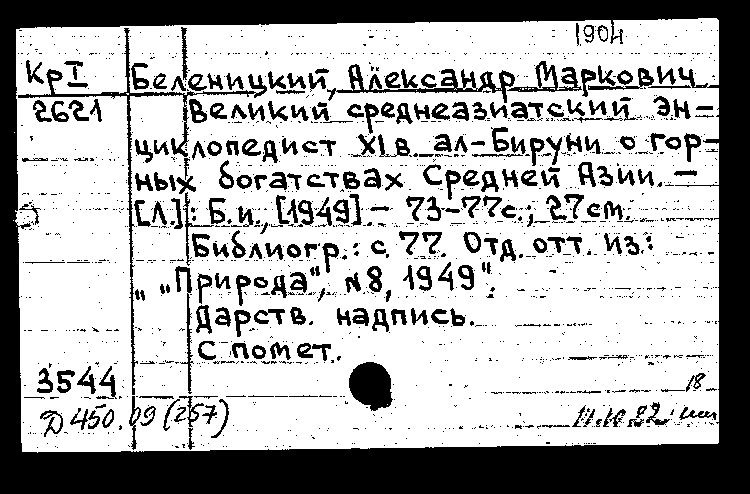 1904
КрI Беленицкий, Александр Маркович
2621 Великий среднеазиатский эн-
циклопедист XI в. ал-Бируни о гор-
ных богатствах Средней Азии. —
[Л.]: Б.и., [1949]. - 73-77с.; 27см.
Библиогр.: с. 77. Отд. отт. из.:
„ „Природа", №8, 1949".
Дарств. надпись.
С помет.
3544
18
Д 450.09 (257)